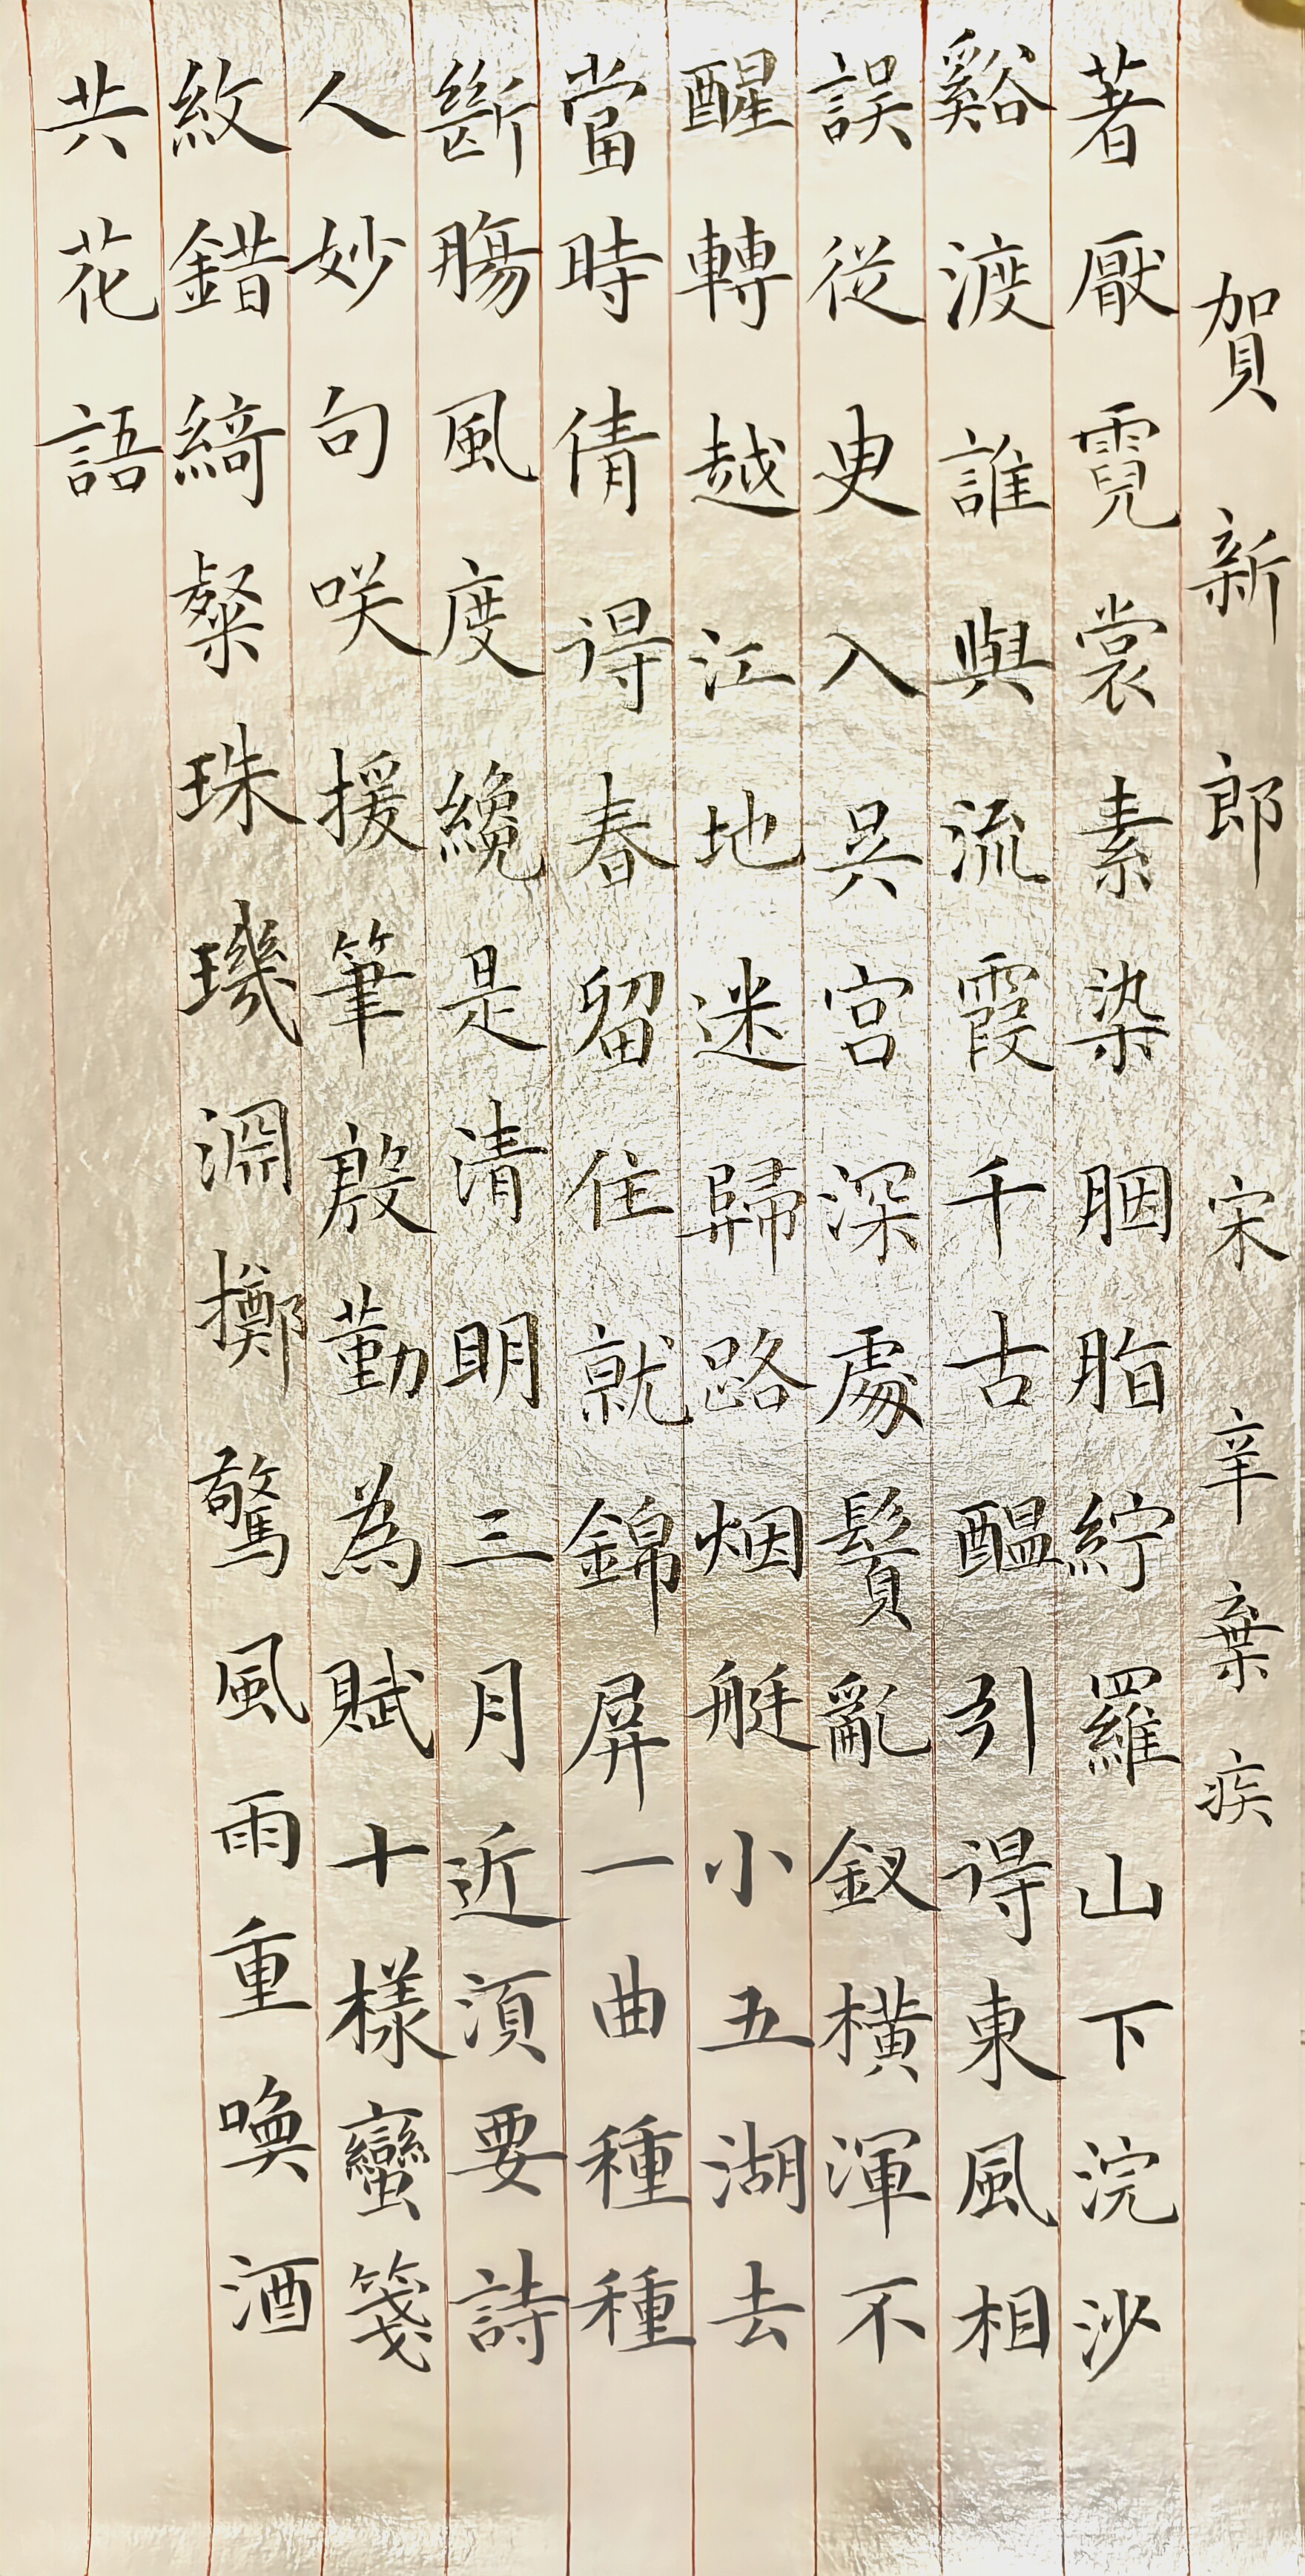 賀新郎 宋 辛棄疾
著厭霓裳素染胭脂紵羅山下浣沙
谿渡誰與流霞千古醞引得東風相
誤從臾入吳宮深處鬢亂釵橫渾不
醒轉越江地迷歸路烟艇小五湖去
當時倩得春留住就錦屏一曲種種
斷腸風度纔是清明三月近須要詩
人妙句咲援筆殷勤為賦十樣蠻箋
紋錯綺粲珠璣淵擲驚風雨重喚酒
共花語